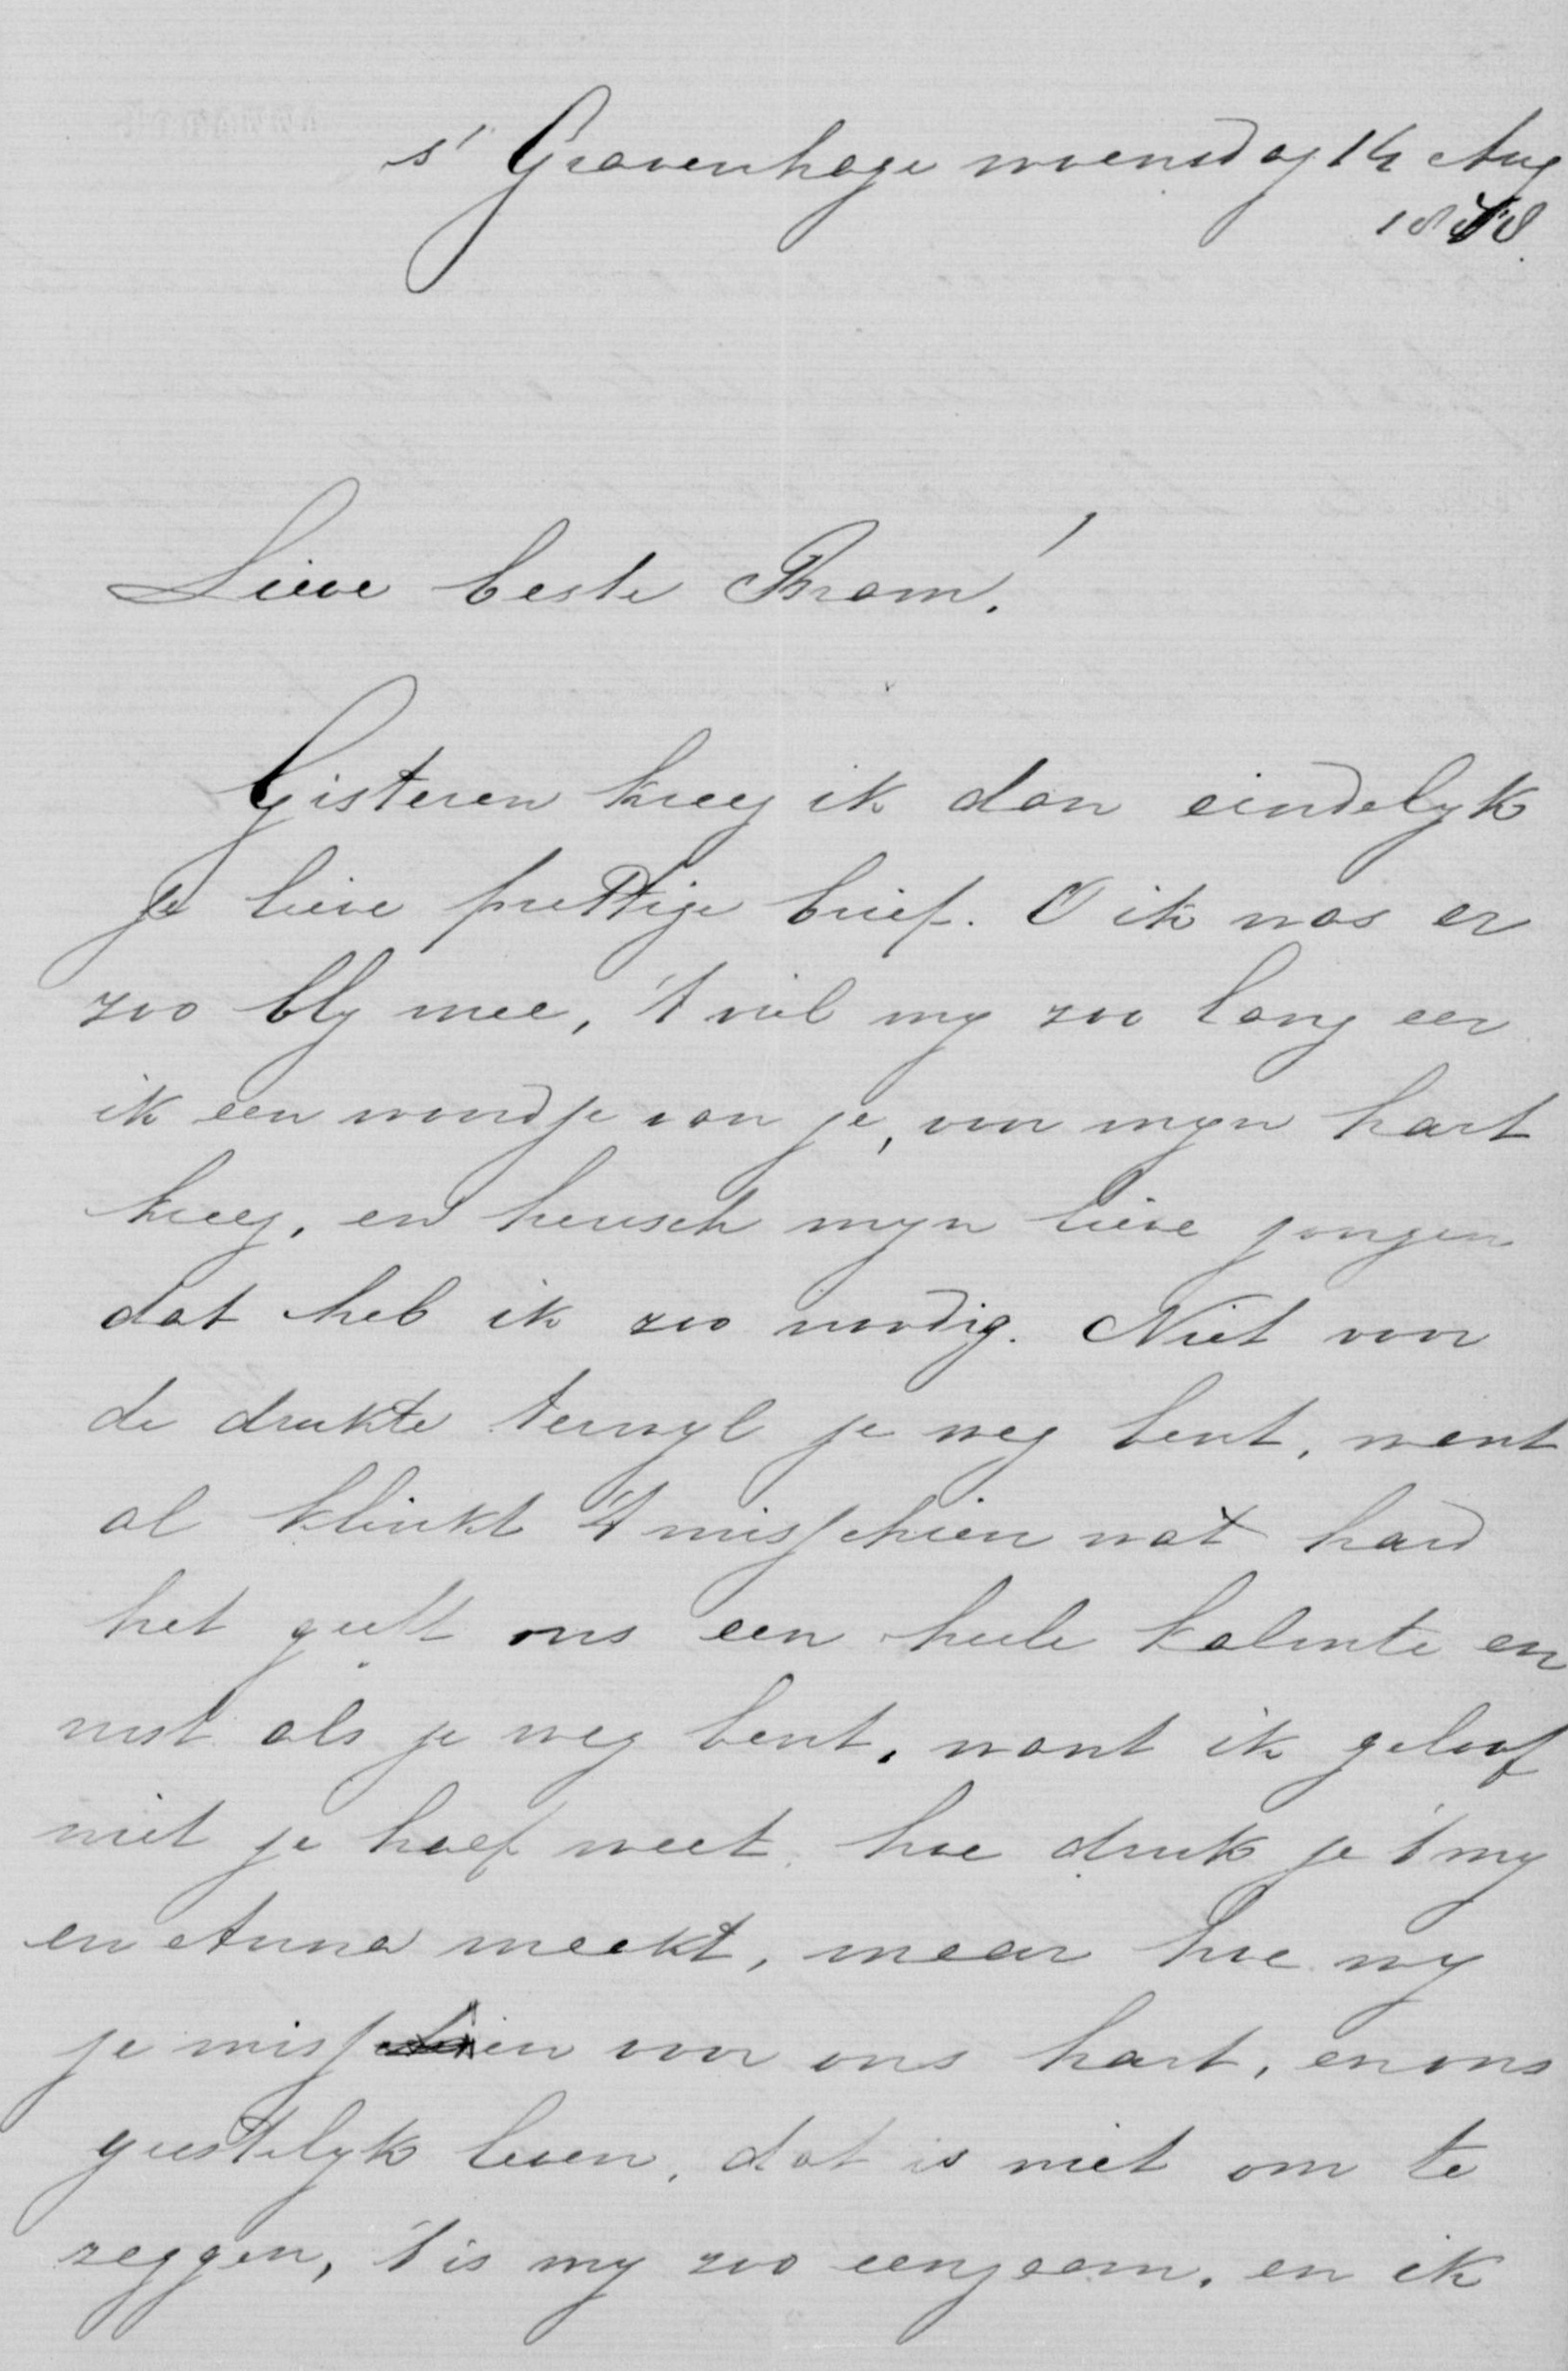 s' Gravenhage woensdag 14 Aug
1878.
Lieve beste Bram!
Gisteren kreeg ik dan eindelyk
je lieve prettige brief. O ik was er
zoo bly mee, 't viel my zoo lang eer
ik een woordje van je, voor myn hart
kreeg, en heusch myn lieve jongen
dat heb ik zoo noodig. Niet voor
de drukte terwyl je weg bent, want
al klinkt 't misschien wat hard
het geeft ons een heele kalmte en
rust als je weg bent, want ik geloof
niet je half weet, hoe druk je 't my
en Anna maakt, maar hoe wy
je missen voor ons hart, en ons
geestelyk leven, dat is niet om te
zeggen, 't is my zoo eenzaam, en ik